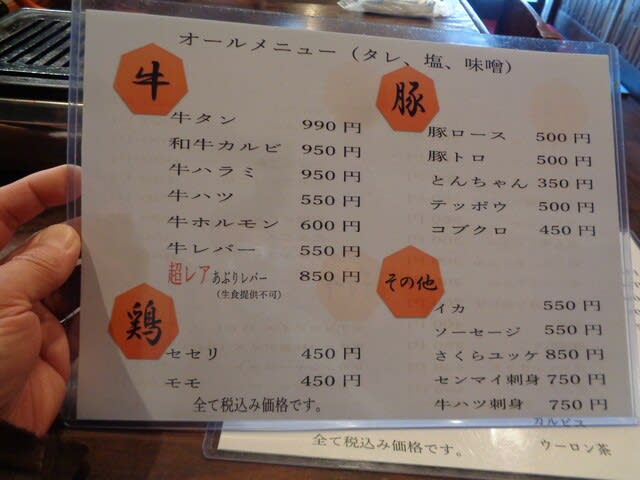 オールメニュー（タレ、塩、味噌）
牛
牛タン 990 円
和牛カルビ 950 円
牛ハラミ 950 円
牛ハツ 550 円
牛ホルモン 600 円
牛レバー 550 円
超レアあぶりレバー 850 円
（生食提供不可）
鶏
セセリ 450 円
モモ 450 円
全て税込み価格です。
豚
豚ロース 500 円
豚トロ 500 円
とんちゃん 350 円
テッポウ 500 円
コブクロ 450 円
その他
イカ 550 円
ソーセージ 550 円
さくらユッケ 850 円
センマイ刺身 750 円
牛ハツ刺身 750 円
カルピス
ウーロン茶
全て税込み価格です。